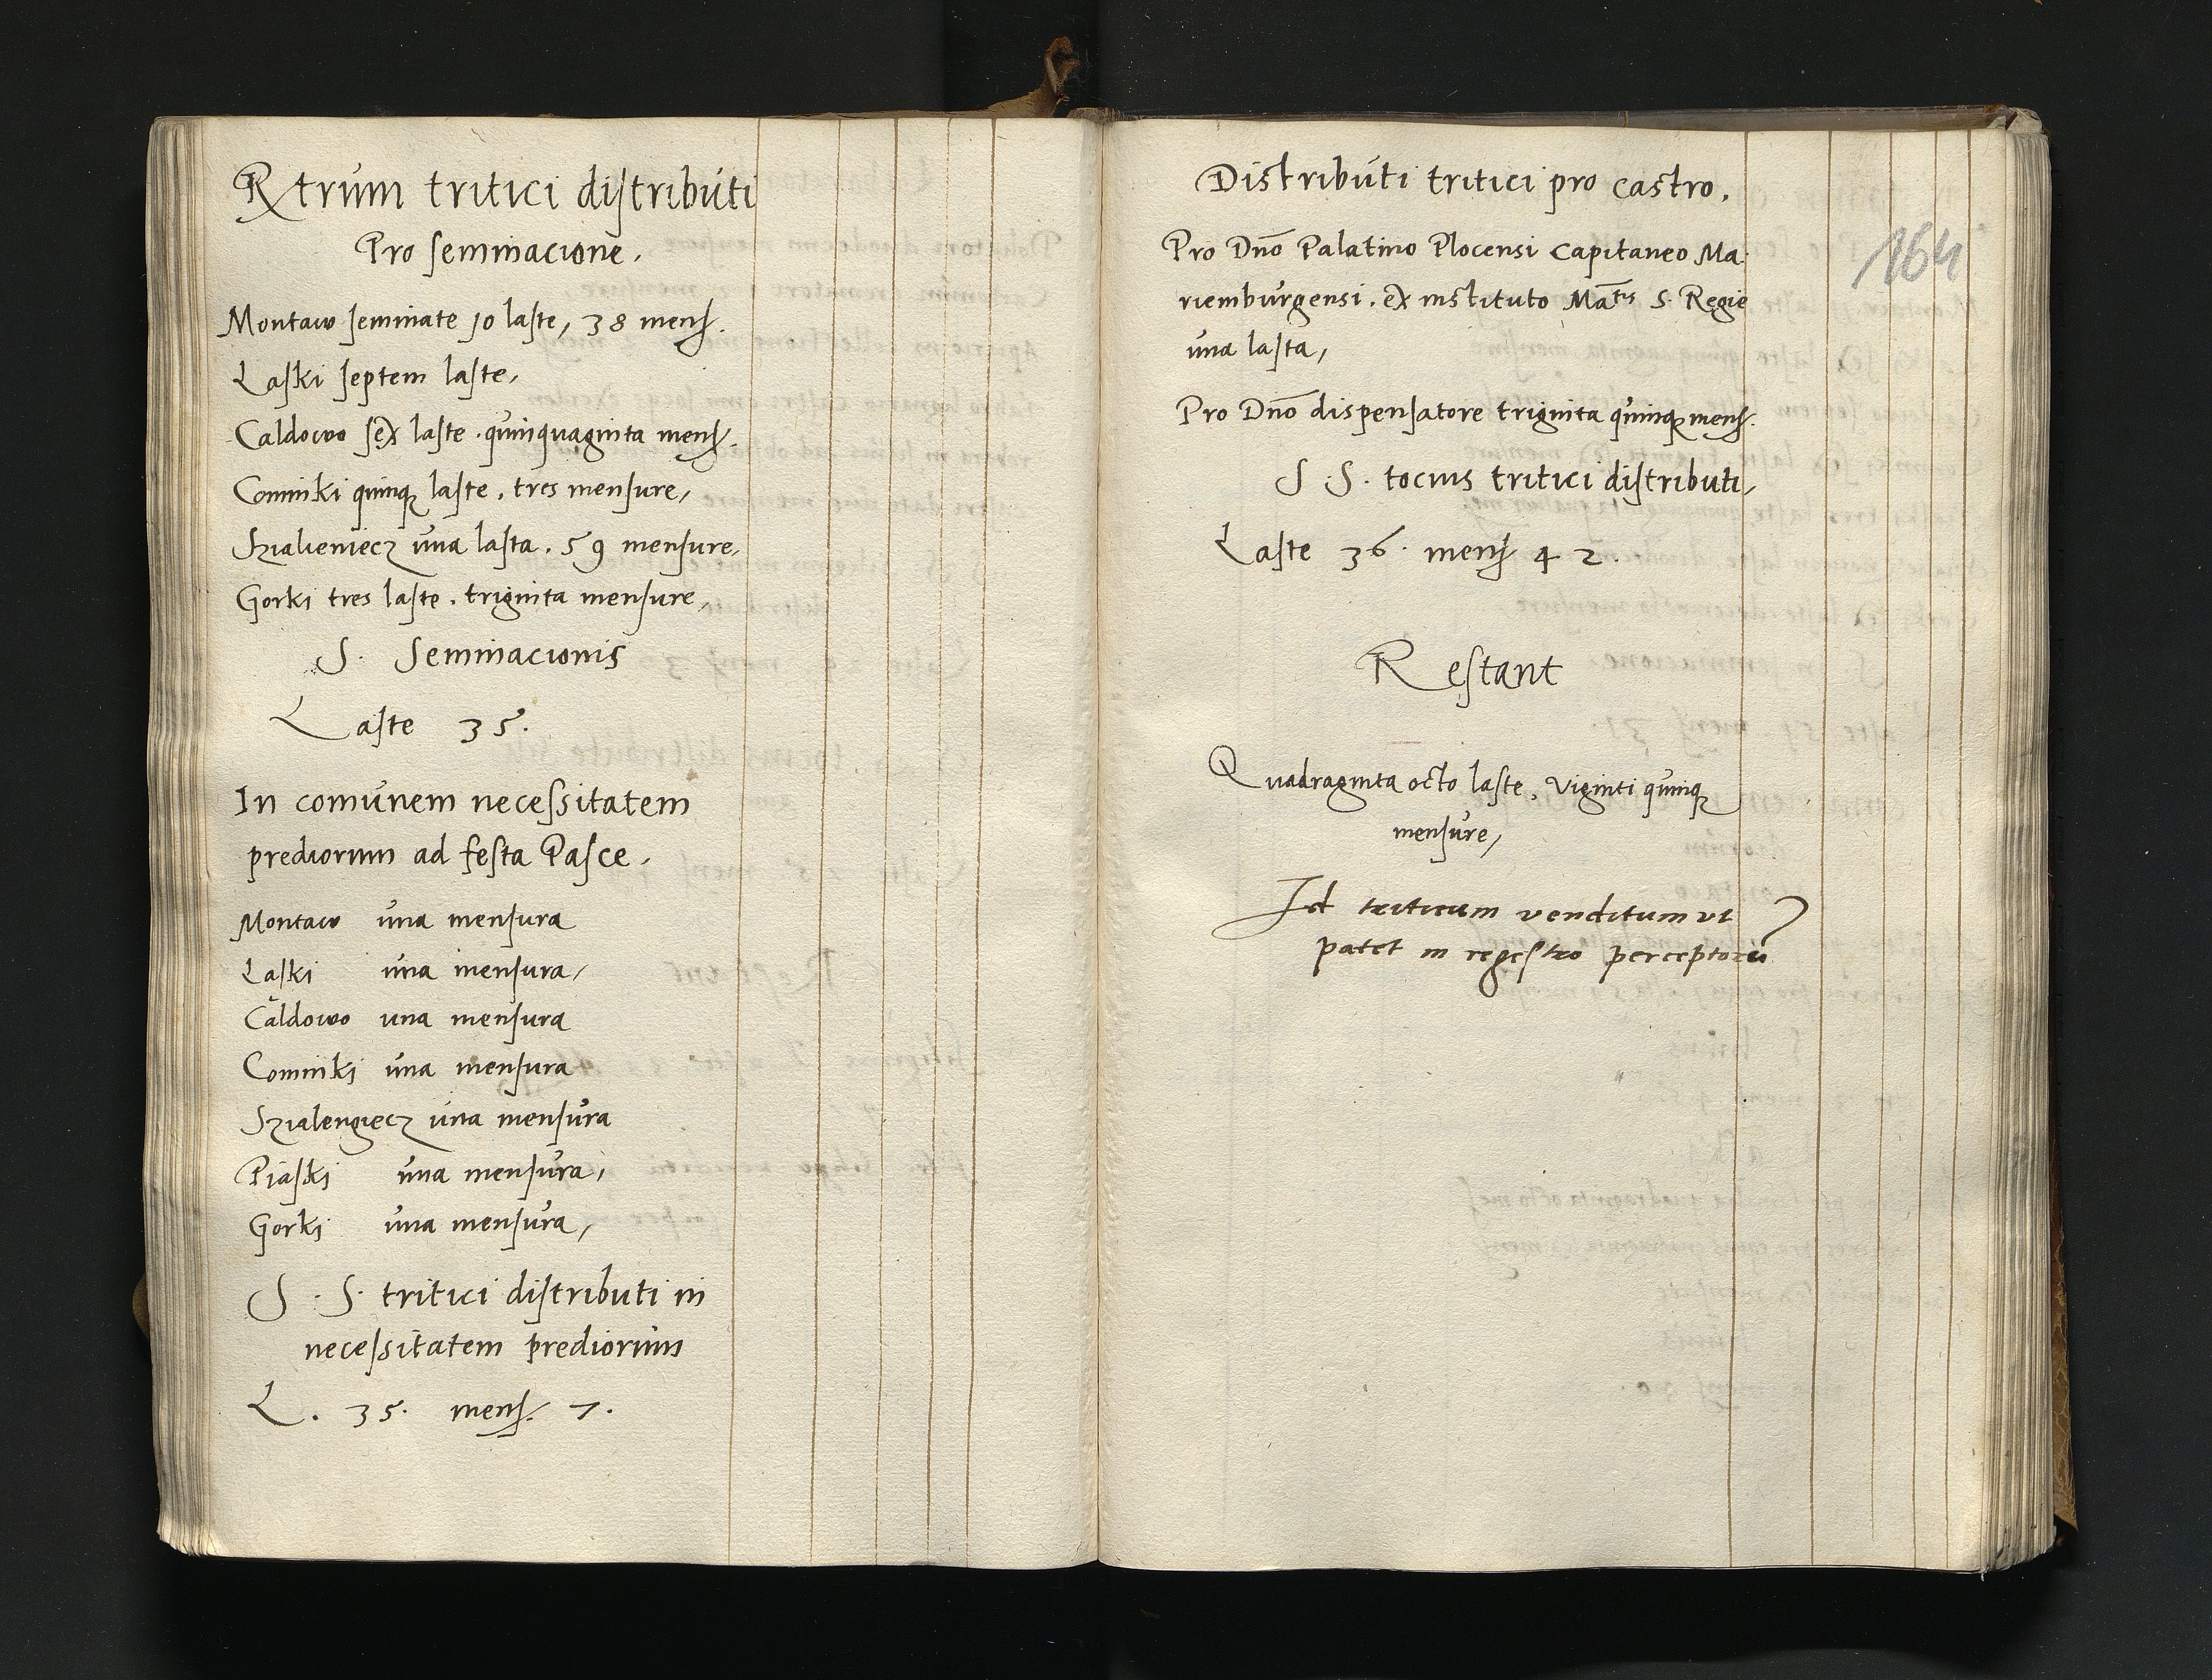 Rtrum tritici distributi
Pro seminacione.
Montaw seminate 10 laste, 38 mens.
Laski septem laste,
Caldowo sex laste . quinquaginta mens.
Cominki quinq laste . tres mensure,
Szialieniecz una lasta . 59 mensure,
Gorki tres laste . triginta mensure,
S. Seminacionis
Laste 35.
In comunem necessitatem
prediorum ad festa Pasce.
Montaw una mensura
Laski una mensura,
Caldowo una mensura
Cominki una mensura
Szialengiecz una mensura
Piaski una mensura,
Gorki una mensura,
S. S. tritici distributi in
necessitatem prediorum
L. 35. mens. 7.
Distributi tritici pro castro.
164
Pro Dno Palatino Plocensi Capitaneo Ma
riemburgensi . ex instituto Matis S. Regie
una lasta,
Pro Dno dispensatore triginta quinq mens.
S. S. tocius tritici distributi,
Laste 36. mens 42.
Restant
Quadraginta octo laste, Viginti quinq
mensure,
Id triticum venditum ut
patet in regestro perceptorũ